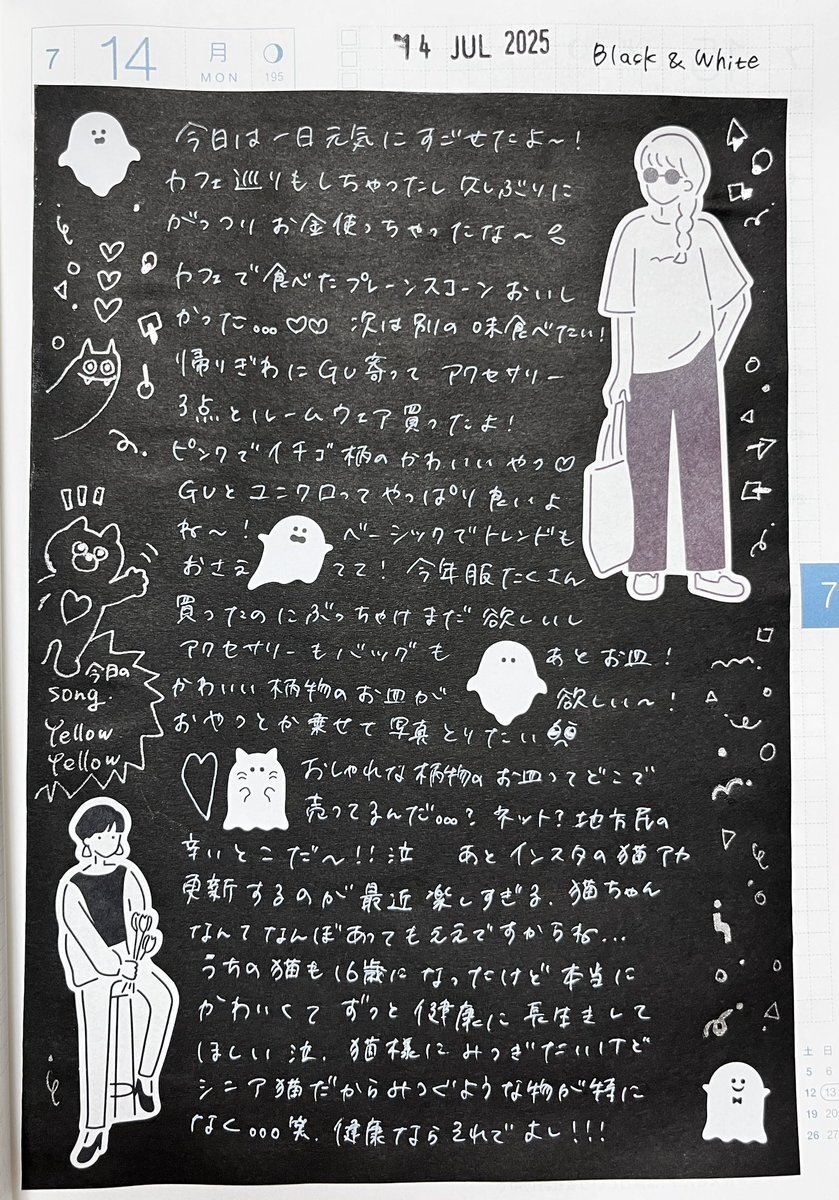 7 14 月 MON 195
14 JUL 2025
Black & White
今日は一日元気にすごせたよ～!
カフェ巡りもしちゃったし久しぶりに
がっつりお金使っちゃったな～
カフェで食べたプレーンスコーンおいし
かった...♡♡ 次は別の味食べたい!
帰りぎわにGU寄って アクセサリー
3点とルームウェア買ったよ!
ピンクでイチゴ柄のかわいいやつ♡
GUとユニクロってやっぱり良いよ
ね～! ベーシックでトレンドも
おさえ てて! 今年服たくさん
買ったのにぶっちゃけまだ欲しいし
アクセサリーもバッグも あとお皿!
かわいい柄物のお皿が 欲しい～!
おやつとか乗せて写真とりたい
今日の
song.
Yellow
Yellow
おしゃれな柄物のお皿ってどこで
売ってるんだ...? ネット? 地方民の
辛いとこだ～!! 泣 あとインスタの猫アカ
更新するのが最近楽しすぎる. 猫ちゃん
なんてなんぼあってもええですからね...
うちの猫も16歳になったけど本当に
かわいくてずっと健康に長生きして
ほしい泣. 猫様にみつぎたいけど
シニア猫だからみつぐような物が特に
なく...笑. 健康ならそれでよし!!!
7
土 日
5 6
12 13
19 20
26 27